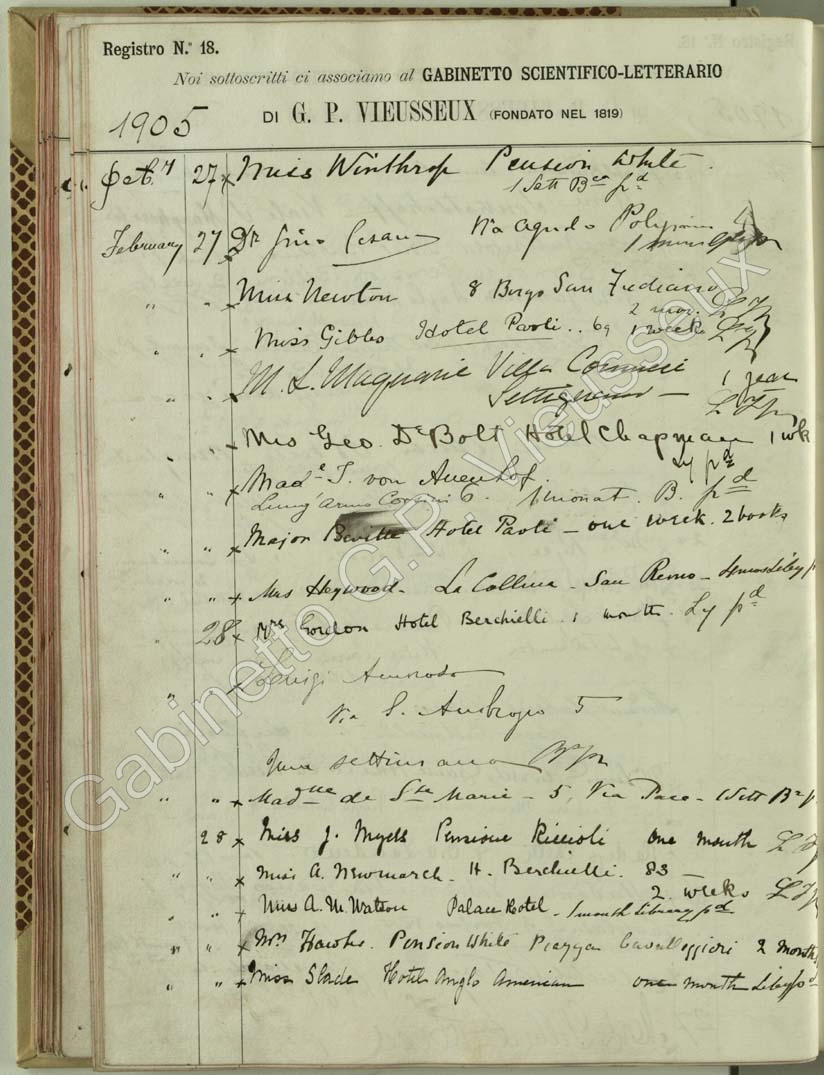 Registro N.° 18.
Noi sottoscritti ci associamo al GABINETTO SCIENTIFICO-LETTERARIO
DI G. P. VIEUSSEUX (FONDATO NEL 1819)
1905
27 x Miss Winthrop Pension White.
1 Sett Bca pd
February 27 x Dr Gino Via
1 mese
" " x Miss Newton 8 Borgo San Frediano
2 mos.
" " x Miss Gibbs Hotel Paoli .. 69 1 week
" " x M. L. Villa 1 year
Settignano —
" " x Mrs Geo. De Bolt Hotel Chapman 1 wk
Ly pd
" " x Made J. von
Lung'Arno Corsini 6. 1 Monat. B. pd
" " x Major Hotel Paoli — one week. 2 books
" " x Mrs Heywood - La Collina - San Remo -
28 x Mrs Gordon Hotel Berchielli. 1 month. Ly pd
" x Luigi
Via S. Ambrogio 5
Una settimana
" " x Madlle de Ste Marie - 5, Via Pace - 1 Sett
28 x Miss J. Myers Pensione Riccioli one month
" " x Miss A. Newmarch. H. Berchielli. 83 —
2 weeks
" " x Miss A. M. Watson Palace Hotel - 1 month Library pd
" " x Mrs Hawks. Pension White Piazza Cavalleggieri 2 months
" " x Miss Slade Hotel Anglo American one month
Gabinetto G.P. Vieusseux